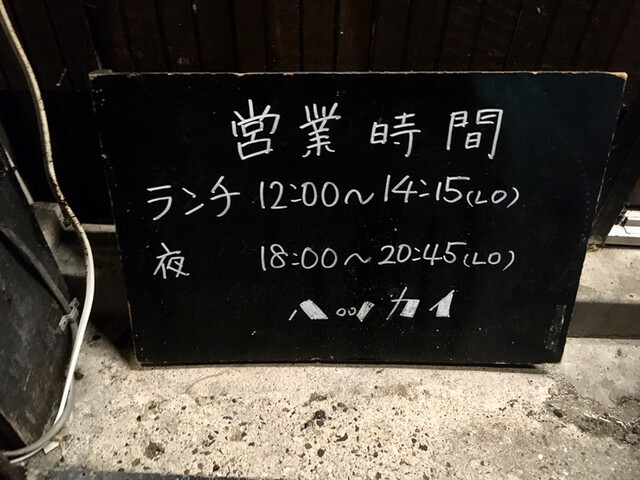 営業時間
ランチ 12:00〜14:15(LO)
夜 18:00〜20:45(LO)
ハッカイ